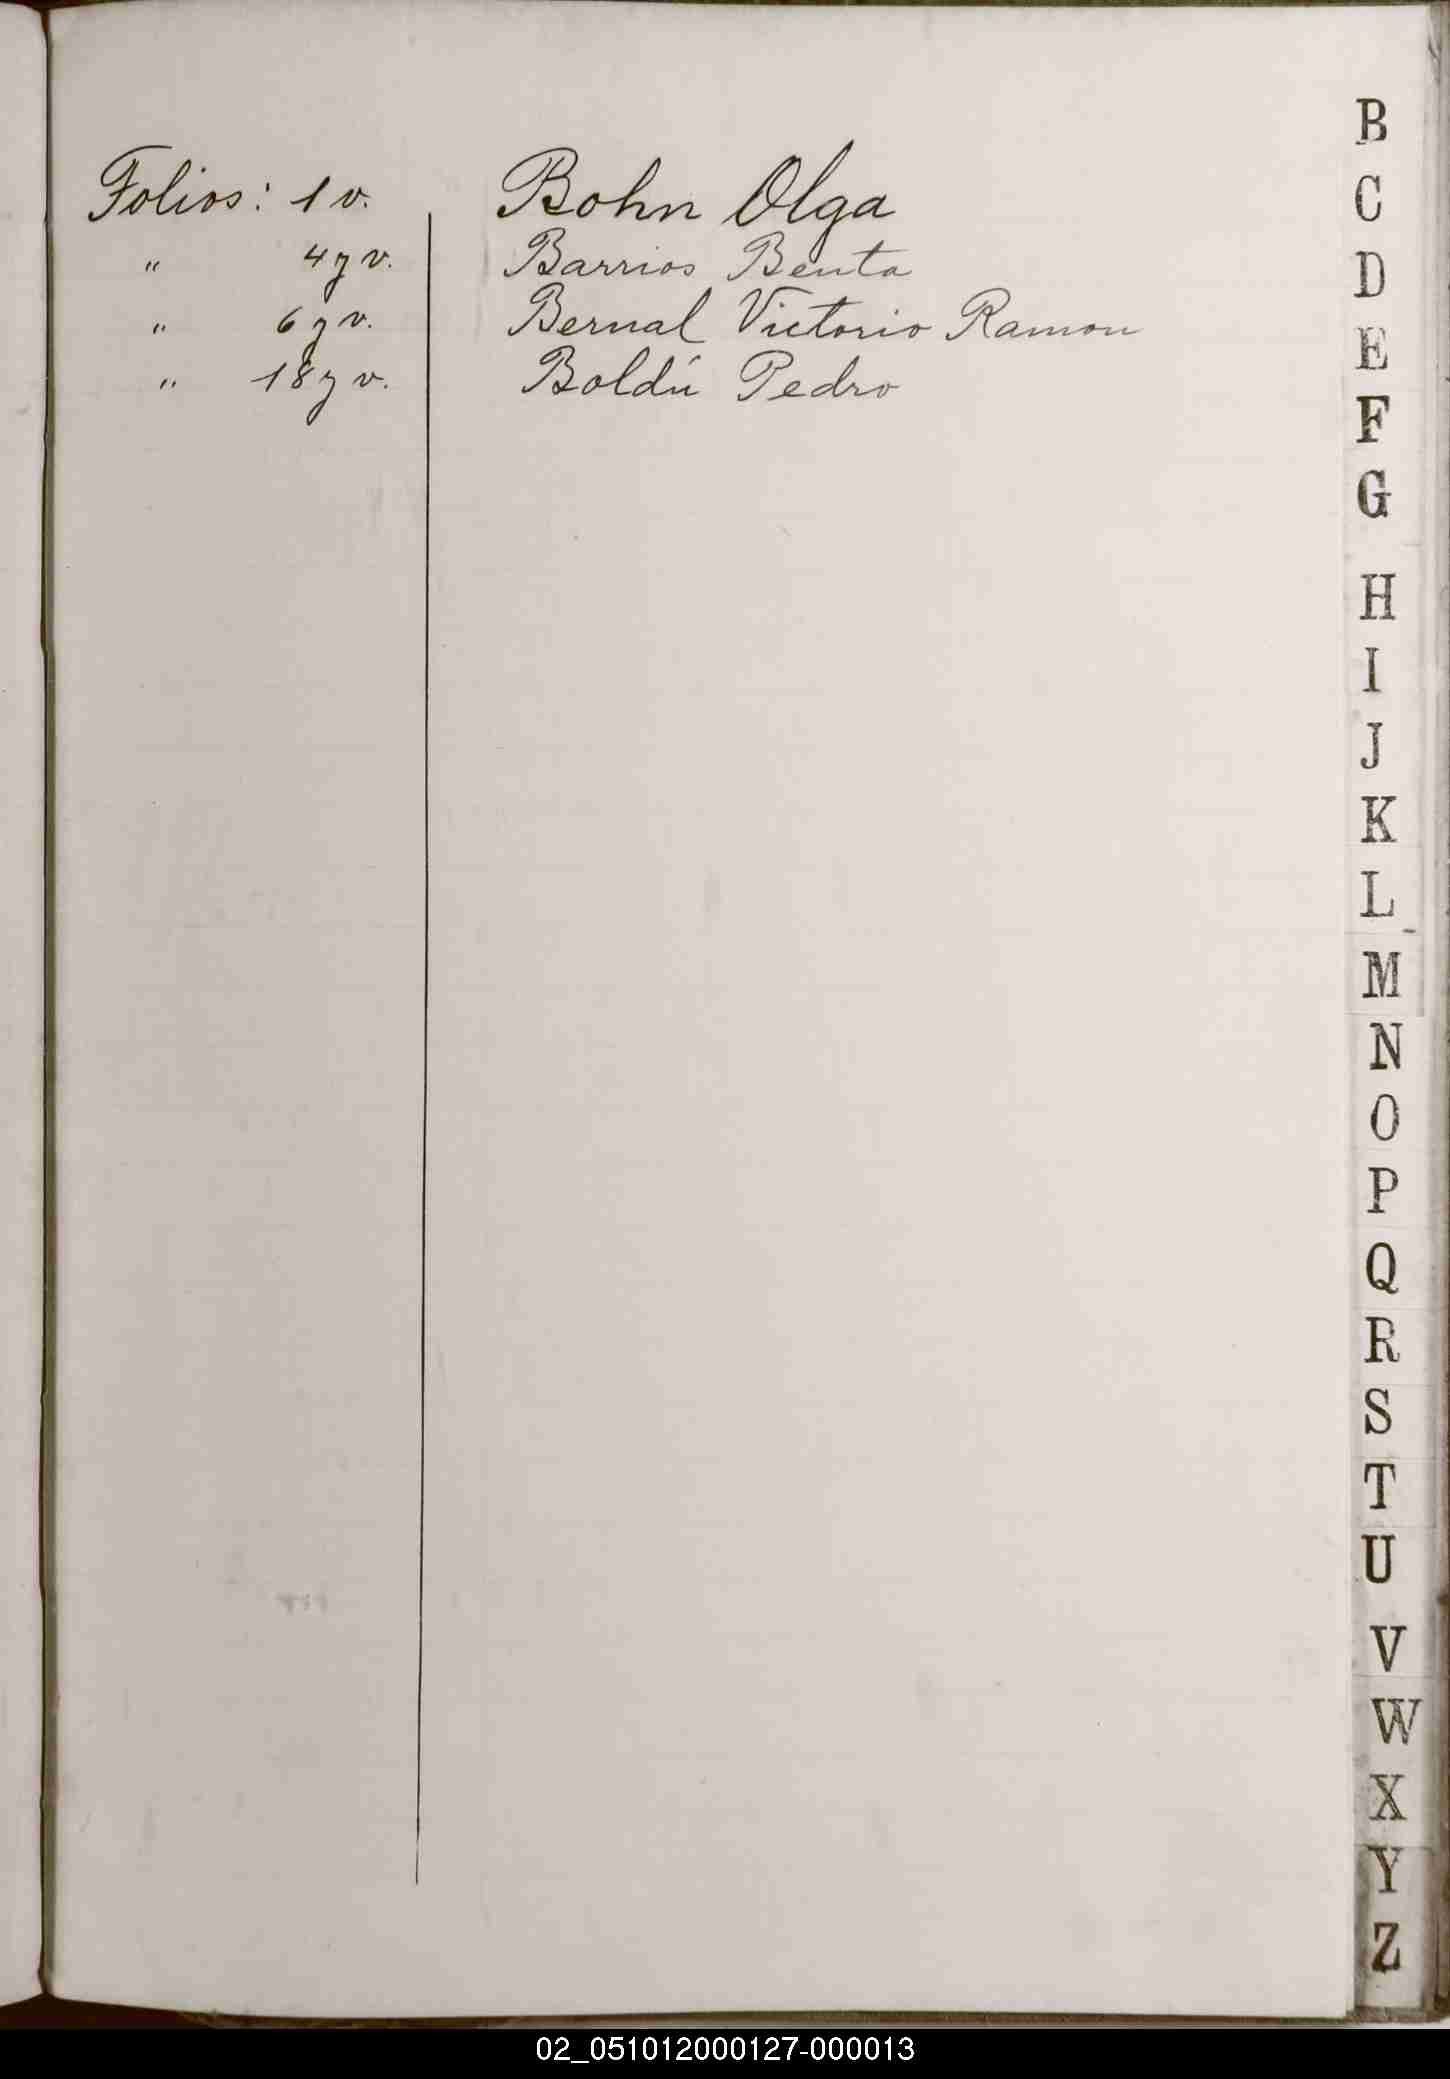 Folios: 1 v. Bohn Olga
" 4 y v. Barrios Benta
" 6 y v. Bernal Victorio Ramon
" 18 y v. Boldú Pedro
B
C
D
E
F
G
H
I
J
K
L
M
N
O
P
Q
R
S
T
U
V
W
X
Y
Z
02_051012000127-000013